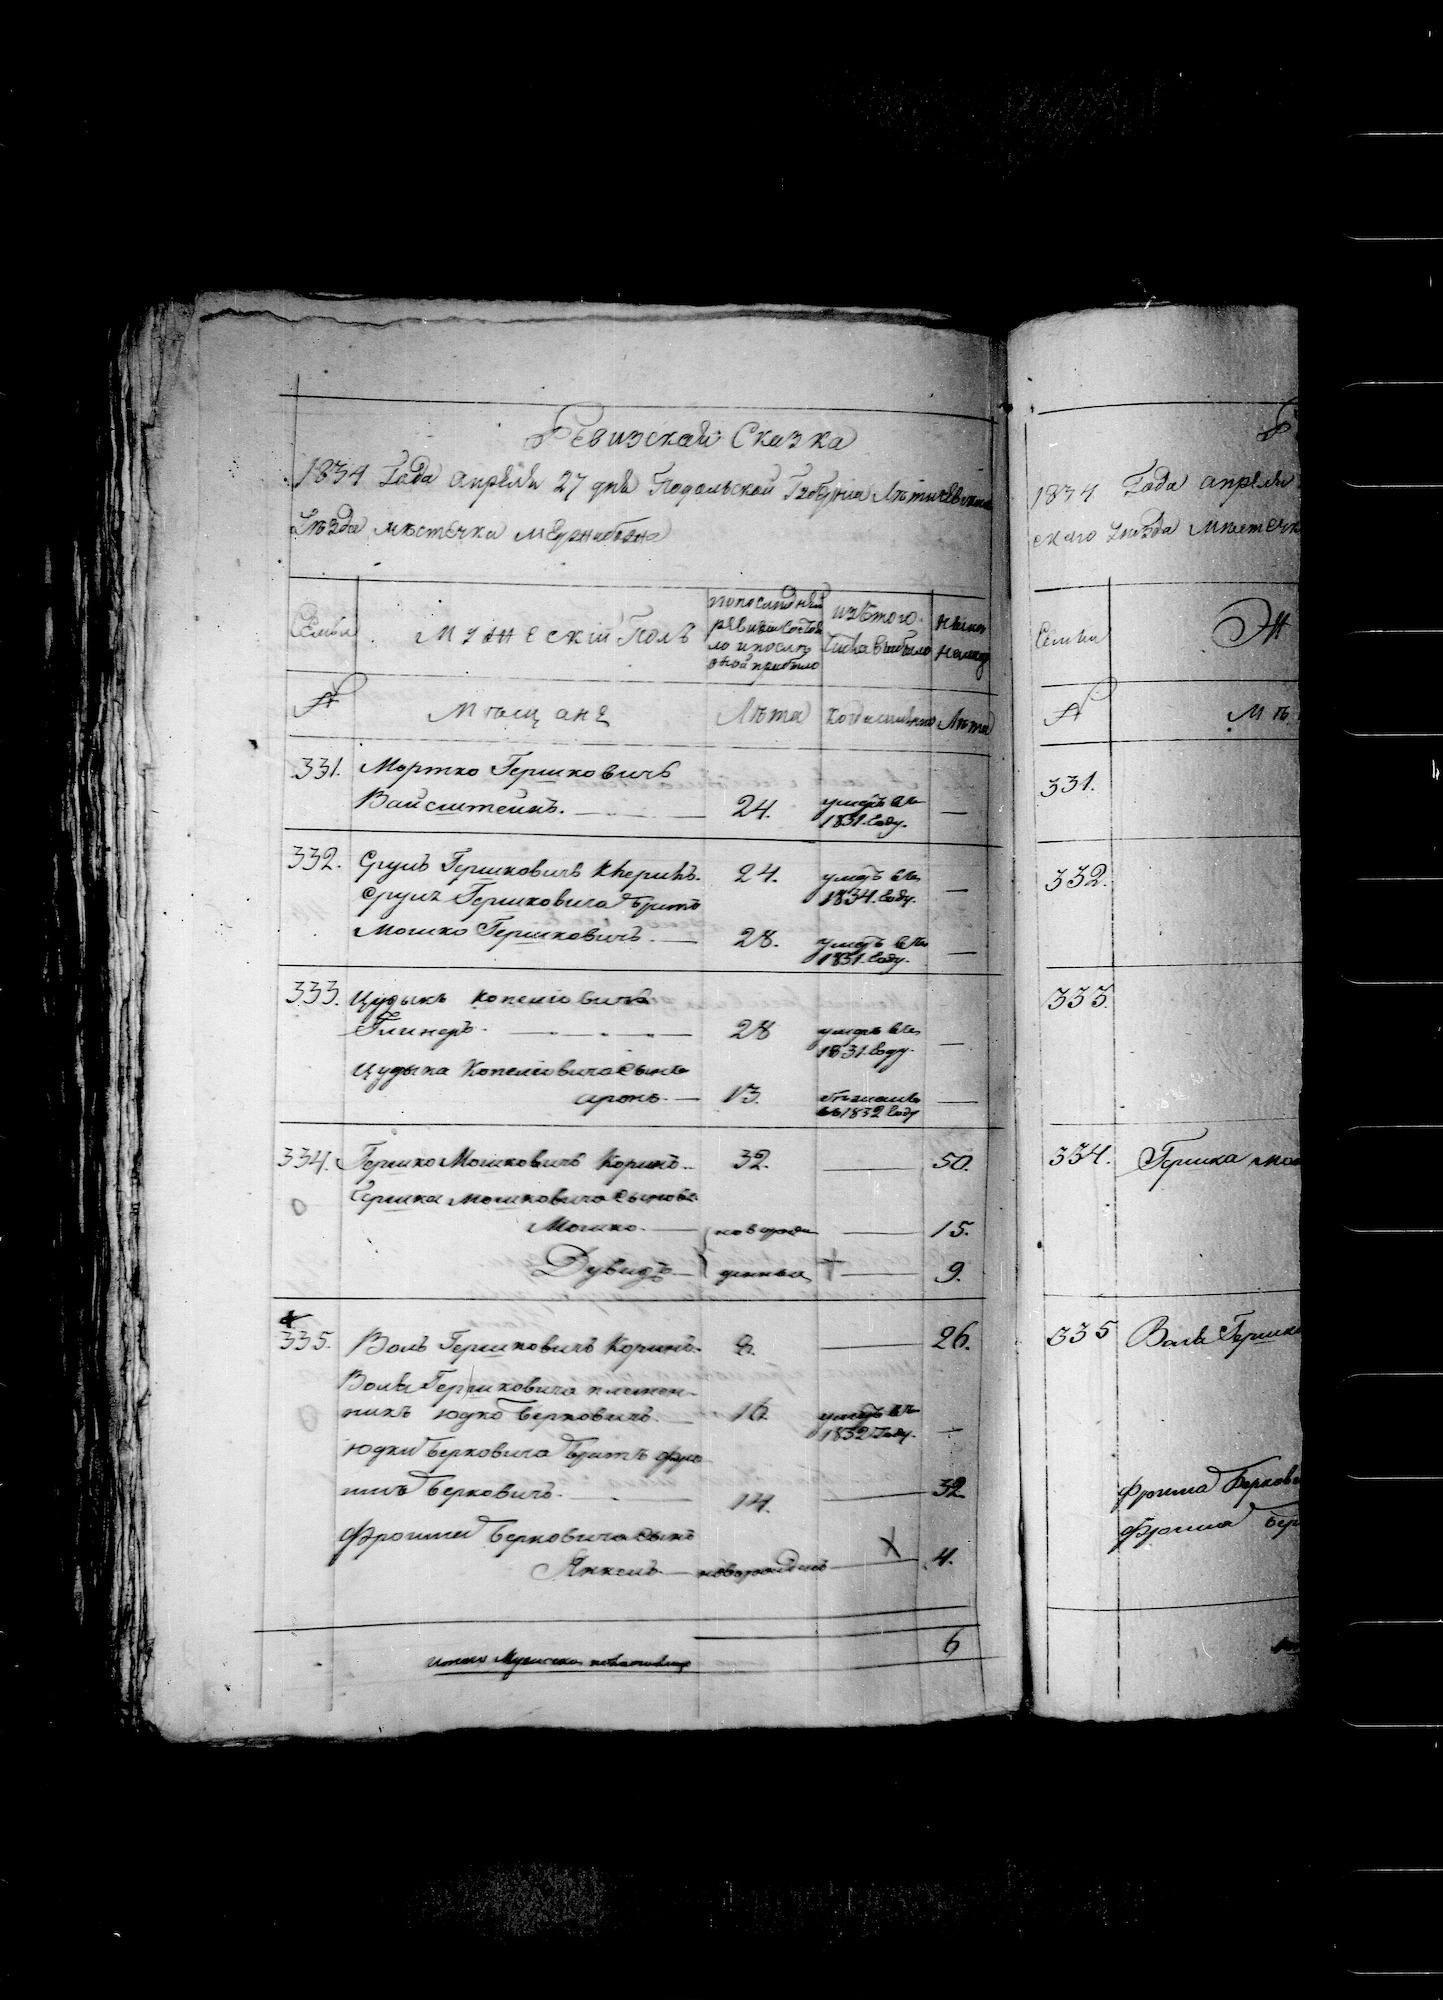 Ревизская Сказка
1834 Года апреля 27 дня Подольской Губернии Лѣтичевскаго
Уѣзда мѣстечка
Семьи
Мужескій Полъ
по последней
ревизіи состоя
ло и послѣ
оной прибыло
изъ того
числа выбыло
ныне
на лицо
№
Мѣщане
Лѣта
когда именно
Лѣта
331. Мортко Гершковичъ
Вайсштейнъ. 24. умеръ въ
1831. Году. —
332. Сруль Гершковичъ 24. умеръ въ
1834. Году. —
Сруля Гершковича братъ
Мошко Гершковичъ. — 28. умеръ въ
1831. Году. —
333. Цудыкъ Копелiовичъ
Глинеръ. 28 умеръ въ
1831. Году. —
Цудыка Копелiовича сынъ
аронъ. — 13.
въ 1832 Году —
334. Гершко Мошковичъ Коринъ. 32. — 50.
Гершка Мошковича сыновья
Мошко. — новорож — 15.
Дувидъ. — денныя — 9.
335. Воль Гершковичъ Коринъ. 8. — 26.
Воля Гершковича племен-
никъ Юдко Берковичъ. — 16 умеръ въ
1832 Году. —
Юдки Берковича братъ Фро
имъ Берковичъ. — 14. — 32
Фроима Берковича сынъ
Янкель — новорожденъ — 4.
Итого Мужеска на лицо 6
1834 Года апреля
скаго Уѣзда Мѣстечк
Семьи
Ж
№
Мѣ
331.
332.
333.
334. Гершка Мош
335 Воля Гершко
Фроима Беркови
Фроима Бер